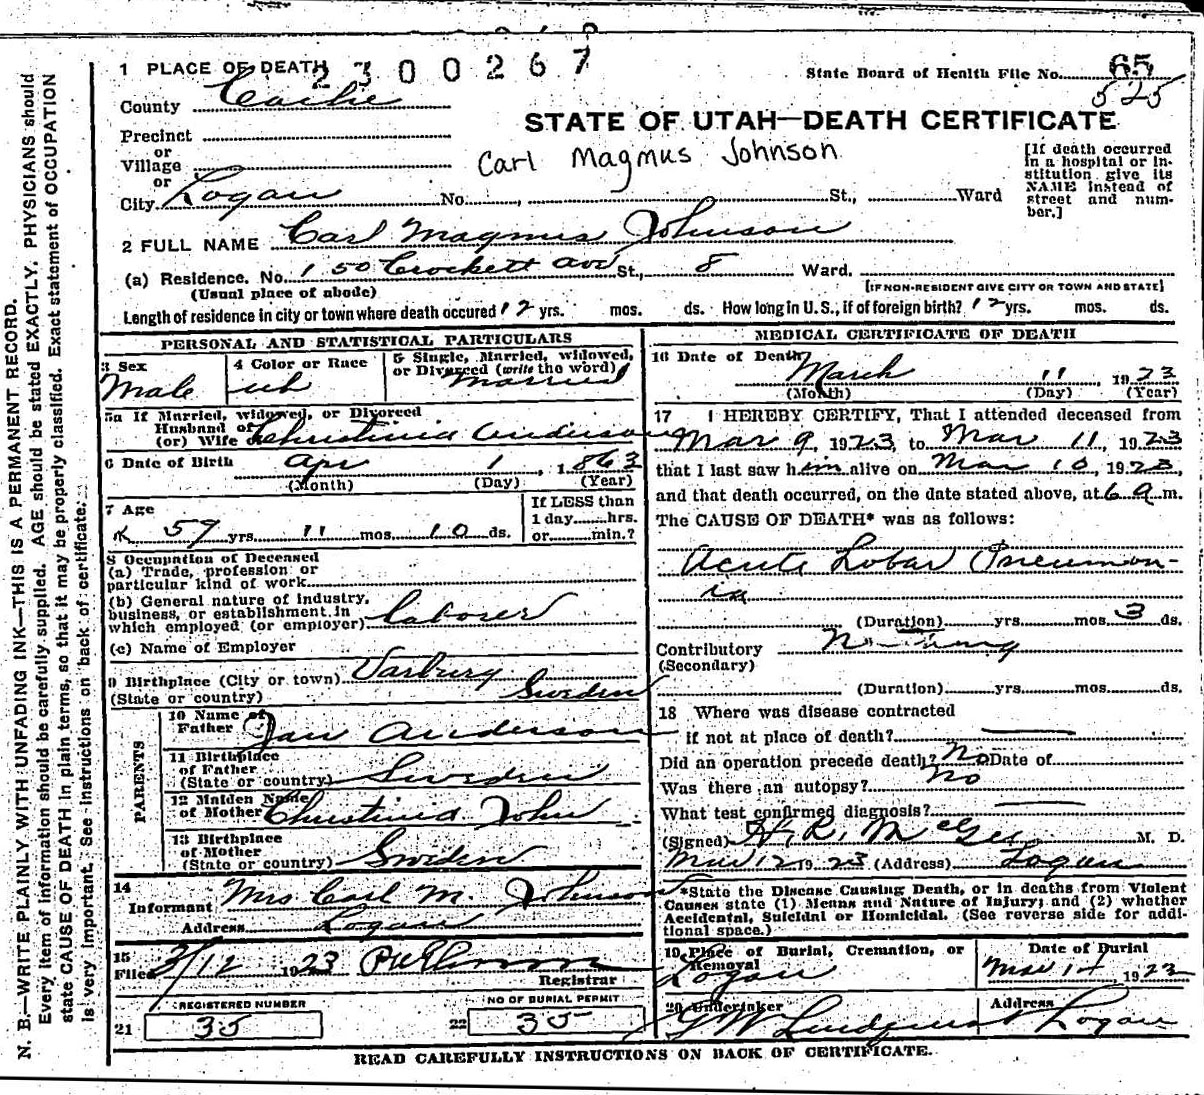 N. B.—WRITE PLAINLY, WITH UNFADING INK—THIS IS A PERMANENT RECORD.
Every item of information should be carefully supplied. AGE should be stated EXACTLY. PHYSICIANS should
state CAUSE OF DEATH in plain terms, so that it may be properly classified. Exact statement of OCCUPATION
is very important. See instructions on back of certificate.
1 PLACE OF DEATH
2300267
State Board of Health File No. 65
525
County Cache
STATE OF UTAH—DEATH CERTIFICATE
Precinct
or
Village
or
Carl Magmus Johnson
[If death occurred
in a hospital or in-
stitution give its
NAME instead of
street and num-
ber.]
City Logan No. St., Ward
2 FULL NAME Carl Magmus Johnson
(a) Residence. No. 150 Crockett Ave St., 8 Ward.
(Usual place of abode)
[IF NON-RESIDENT GIVE CITY OR TOWN AND STATE]
Length of residence in city or town where death occured 12 yrs. mos. ds. How long in U.S., if of foreign birth? 12 yrs. mos. ds.
PERSONAL AND STATISTICAL PARTICULARS
3 Sex
Male
4 Color or Race
wh
5 Single, Married, widowed,
or Divorced (write the word)
Married
5a If Married, widowed, or Divorced
Husband of
(or) Wife of Christinia Anderson
6 Date of Birth Apr 1, 1863
(Month) (Day) (Year)
7 Age
59 yrs. 11 mos. 10 ds.
If LESS than
1 day hrs.
or min.?
8 Occupation of Deceased
(a) Trade, profession or
particular kind of work
(b) General nature of industry,
business, or establishment in
which employed (or employer) laborer
(c) Name of Employer
9 Birthplace (City or town) Varburg
(State or country) Sweden
PARENTS
10 Name of
Father Jan Anderson
11 Birthplace
of Father
(State or country) Sweden
12 Maiden Name
of Mother Christinia John
13 Birthplace
of Mother
(State or country) Sweden
14
Informant Mrs Carl M. Johnson
Address Logan
15
Filed 3/12 1923
Registrar
REGISTERED NUMBER
21 35
NO OF BURIAL PERMIT
22 35
MEDICAL CERTIFICATE OF DEATH
16 Date of Death
March 11 1923
(Month) (Day) (Year)
17 I HEREBY CERTIFY, That I attended deceased from
Mar 9, 1923, to Mar 11, 1923
that I last saw him alive on Mar 10, 1923,
and that death occurred, on the date stated above, at 6 a m.
The CAUSE OF DEATH* was as follows:
Acute Lobar Pneumon-
ia
(Duration) yrs. mos. 3 ds.
Contributory
(Secondary)
(Duration) yrs. mos. ds.
18 Where was disease contracted
if not at place of death?
Did an operation precede death? No Date of
Was there an autopsy? No
What test confirmed diagnosis?
(Signed) H. R. McGee M. D.
Mar 12 1923 (Address) Logan
*State the Disease Causing Death, or in deaths from Violent
Causes state (1) Means and Nature of Injury; and (2) whether
Accidental, Suicidal or Homicidal. (See reverse side for addi-
tional space.)
19 Place of Burial, Cremation, or
Removal
Logan
Date of Burial
Mar 14 1923
20 Undertaker
G W Lindquist
Address
Logan
READ CAREFULLY INSTRUCTIONS ON BACK OF CERTIFICATE.